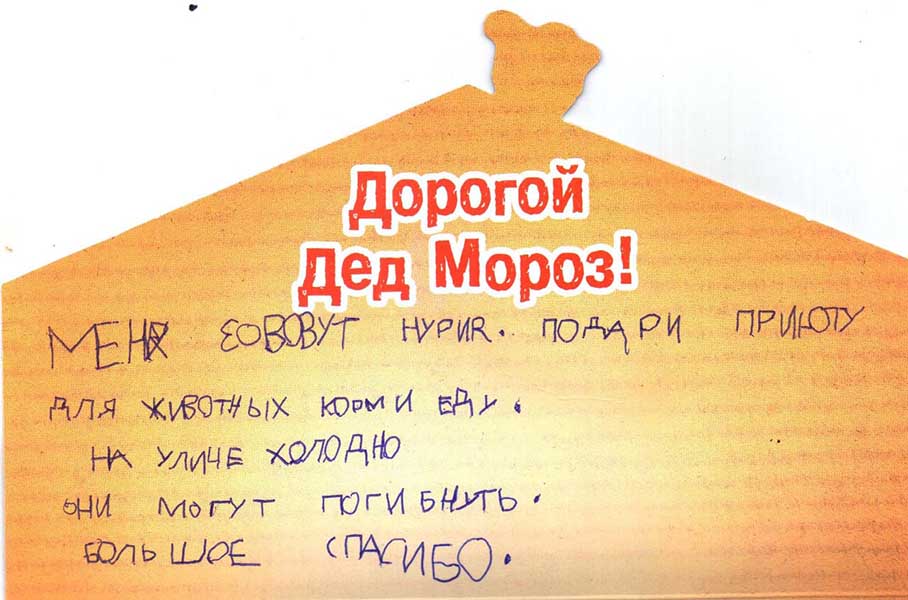 Дорогой
Дед Мороз!
МЕНЯ ЗОВОВУТ НУРИЯ. ПОДАРИ ПРИЮТУ
ДЛЯ ЖИВОТНЫХ КОРМ И ЕДУ.
НА УЛИЧЕ ХОЛОДНО
ОНИ МОГУТ ПОГИБНУТЬ.
БОЛЬШОЕ СПАСИБО.